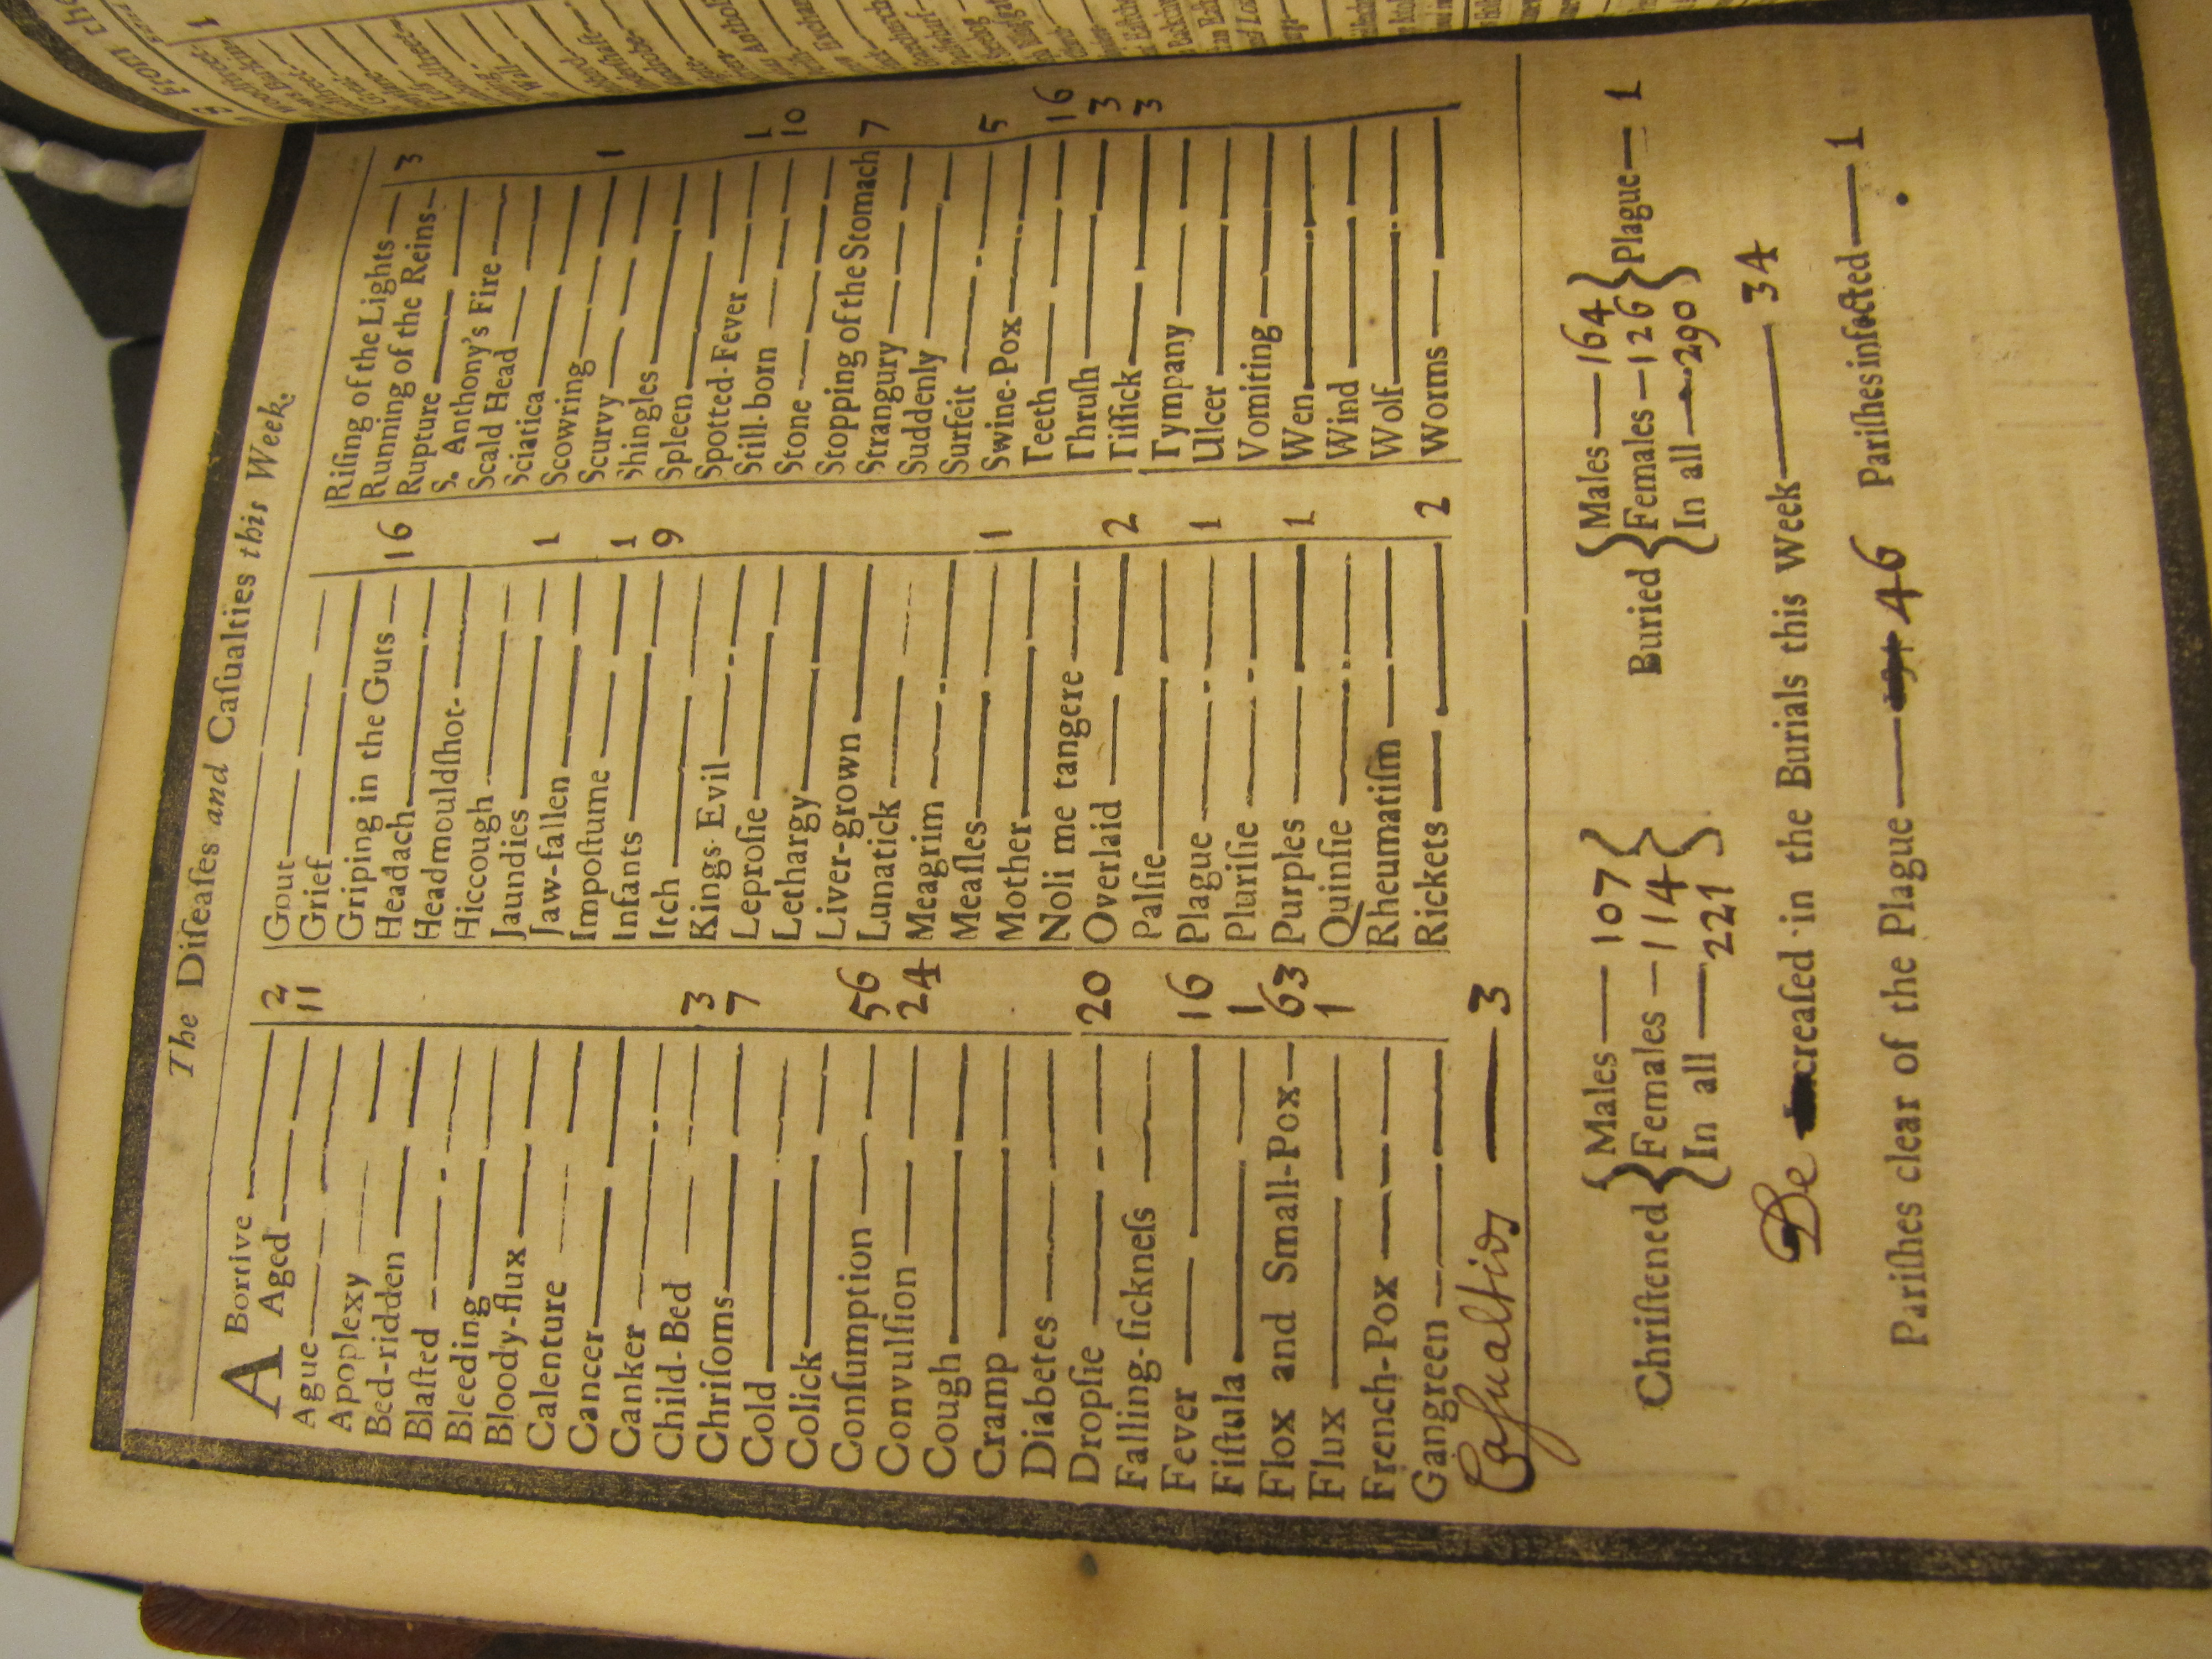 The Diſeaſes and Caſualties this Week.
A Bortive — 2
Aged — 11
Ague —
Apoplexy —
Bed-ridden —
Blaſted —
Bleeding —
Bloody-flux —
Calenture —
Cancer —
Canker —
Child-Bed — 3
Chriſoms — 7
Cold —
Colick —
Conſumption — 56
Convulſion — 24
Cough —
Cramp —
Diabetes —
Dropſie — 20
Falling-ſickneſs —
Fever — 16
Fiſtula — 1
Flox and Small-Pox — 63
Flux — 1
French-Pox —
Gangreen —
Caſualtids — 3
Gout —
Grief —
Griping in the Guts — 16
Headach —
Headmouldſhot —
Hiccough —
Jaundies — 1
Jaw-fallen —
Impoſtume — 1
Infants — 9
Itch —
Kings-Evil —
Leproſie —
Lethargy —
Liver-grown —
Lunatick —
Meagrim —
Meaſles — 1
Mother —
Noli me tangere —
Overlaid — 2
Palſie —
Plague — 1
Pluriſie —
Purples — 1
Quinſie —
Rheumatiſm —
Rickets — 2
Riſing of the Lights — 3
Running of the Reins —
Rupture —
S. Anthony's Fire —
Scald Head —
Sciatica —
Scowring — 1
Scurvy —
Shingles —
Spleen —
Spotted-Fever — 1
Still-born — 10
Stone —
Stopping of the Stomach 7
Strangury —
Suddenly —
Surfeit — 5
Swine-Pox —
Teeth — 16
Thruſh — 3
Tiſſick — 3
Tympany —
Ulcer —
Vomiting —
Wen —
Wind —
Wolf —
Worms —
Chriſtened { Males — 107 Females — 114 In all — 221 }
Buried { Males — 164 Females — 126 In all — 290 } Plague — 1
De creaſed in the Burials this Week — 34
Pariſhes clear of the Plague — 46 Pariſhes infected — 1